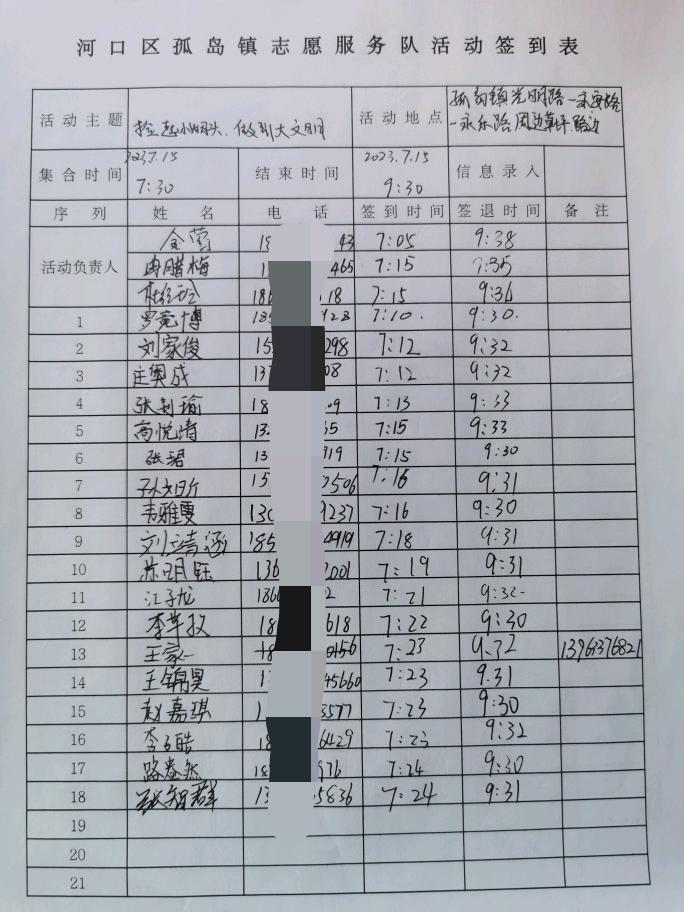 河口区孤岛镇志愿服务队活动签到表
活动主题 捡起小烟头、做到大文明 活动地点 孤岛镇光明路-永安路
-永乐路周边草坪、路边
集合时间 2023.7.15 7:30 结束时间 2023.7.15 9:30 信息录入
序列 姓名 电话 签到时间 签退时间 备注
活动负责人 金 43 7:05 9:38
腊梅 465 7:15 9:35
186 18 7:15 9:36
1 罗竞博 928 7:10. 9:30.
2 刘家俊 15 298 7:12 9:32
3 庄奥成 13 08 7:12 9:32
4 张瑜 18 09 7:13 9:33
5 高悦清 13 35 7:15 9:33
6 张珺 13 919 7:15 9:30
7 孙 15 2506 7:16 9:31
8 韦雅雯 130 9237 7:16 9:30
9 刘靖涵 185 4919 7:18 9:31
10 苏明钰 136 2001 7:19 9:31
11 江子龙 1866 2 7:21 9:32
12 李 18 618 7:22 9:30
13 王家一 18 0156 7:23 9:32 13963376821
14 王锦昊 1 45660 7:23 9:31
15 赵嘉琪 1 3577 7:23 9:30
16 李皓 18 6429 7:23 9:32
17 路然 18 976 7:24 9:30
18 张智群 13 5836 7:24 9:31
19
20
21